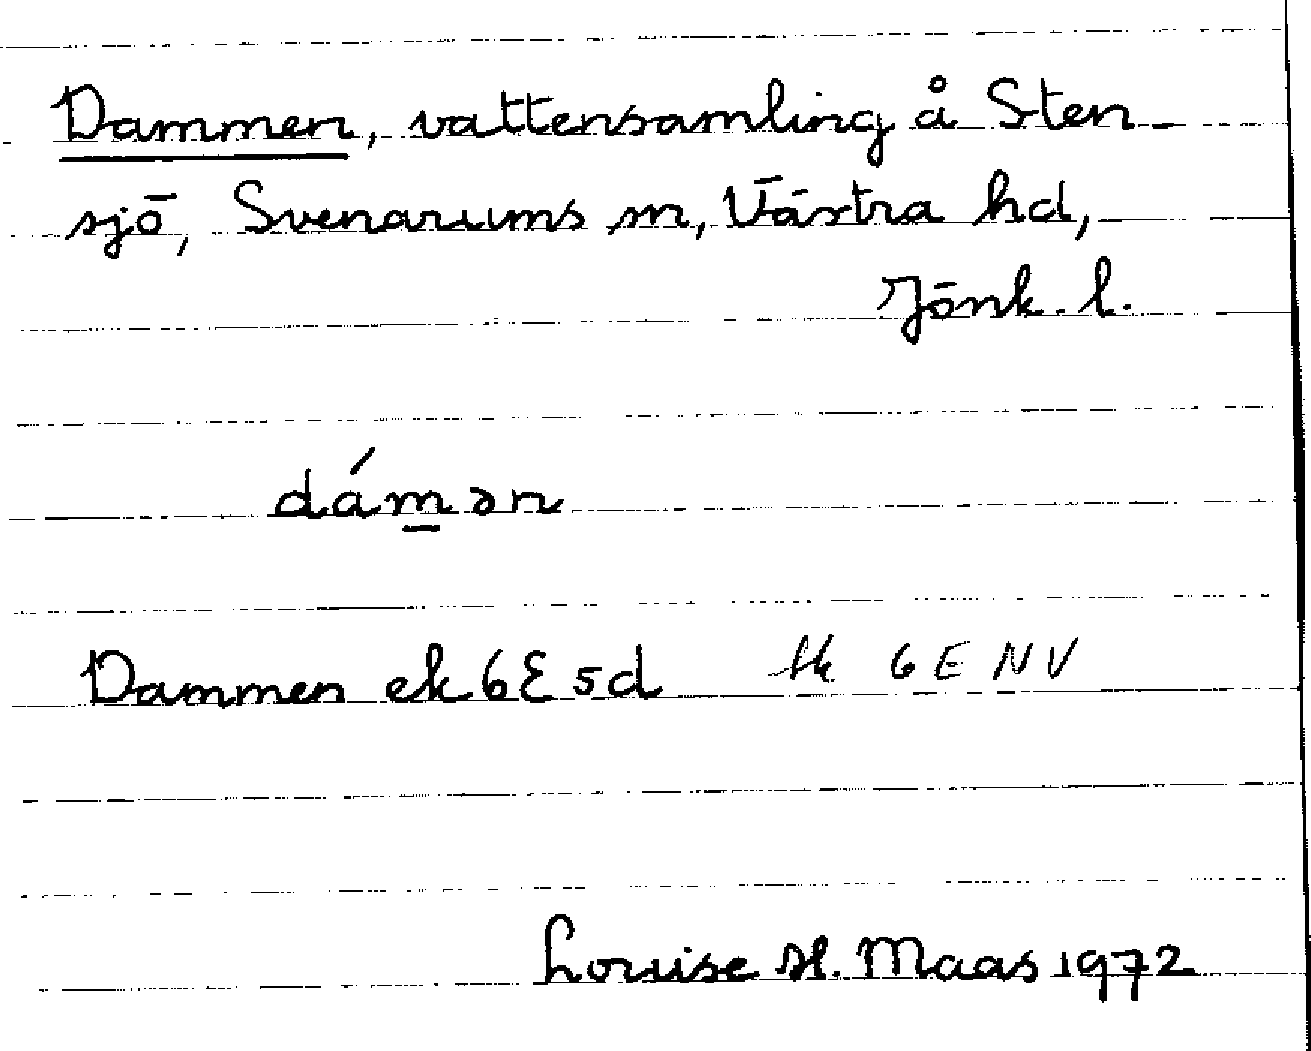 Dammen, vattensamling å Sten-
sjö, Svenarums sn, Västra hd,
Jönk. l.
dámən
Dammen ek 6E5d tk 6E NV
Louise H. Maas 1972